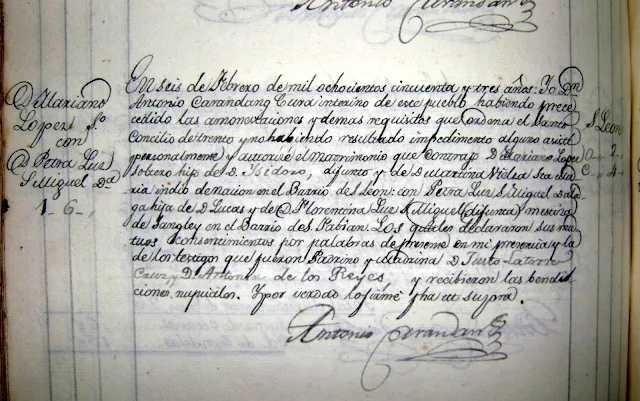 Antonio Carandan
D. Mariano
Lopez S.o
con
D. Petra Luz
S. Miguel D.a
1 - 6 -
En seis de Febrero de mil ochocientos cincuenta y tres años. Yo Dn
Antonio Carandang Cura interino de este pueblo habiendo prece
cedido las amonestaciones y demas requisitos que ordena el Santo
Concilio de trento y no habiendo resultado impedimento alguno asisti
personalmente y autorisé el matrimonio que contrajo D. Mariano Lopez
soltero hijo de D. Isidoro, difunto y de D. Maria
ria indio de nacion en el Barrio de S. Leon: con Petra Luz S. Miguel
ga hija de D. Lucas y de D. Florentina Luz S. Miguel (difunta) mestiza
de Sangley en el Barrio de S. Fabian. Los quales declararon sus mu
tuos consentimientos por palabras de presente en mi presencia y la
de los testigos que fueron Padrino y Madrina D. Justo Latorre
Cruz, y D. Antonia de los Reyes, y recibieron las bendi
ciones nupciales. Y por verdad lo firmé fha ut supra.
Antonio Carandan
S. Leon
2
4